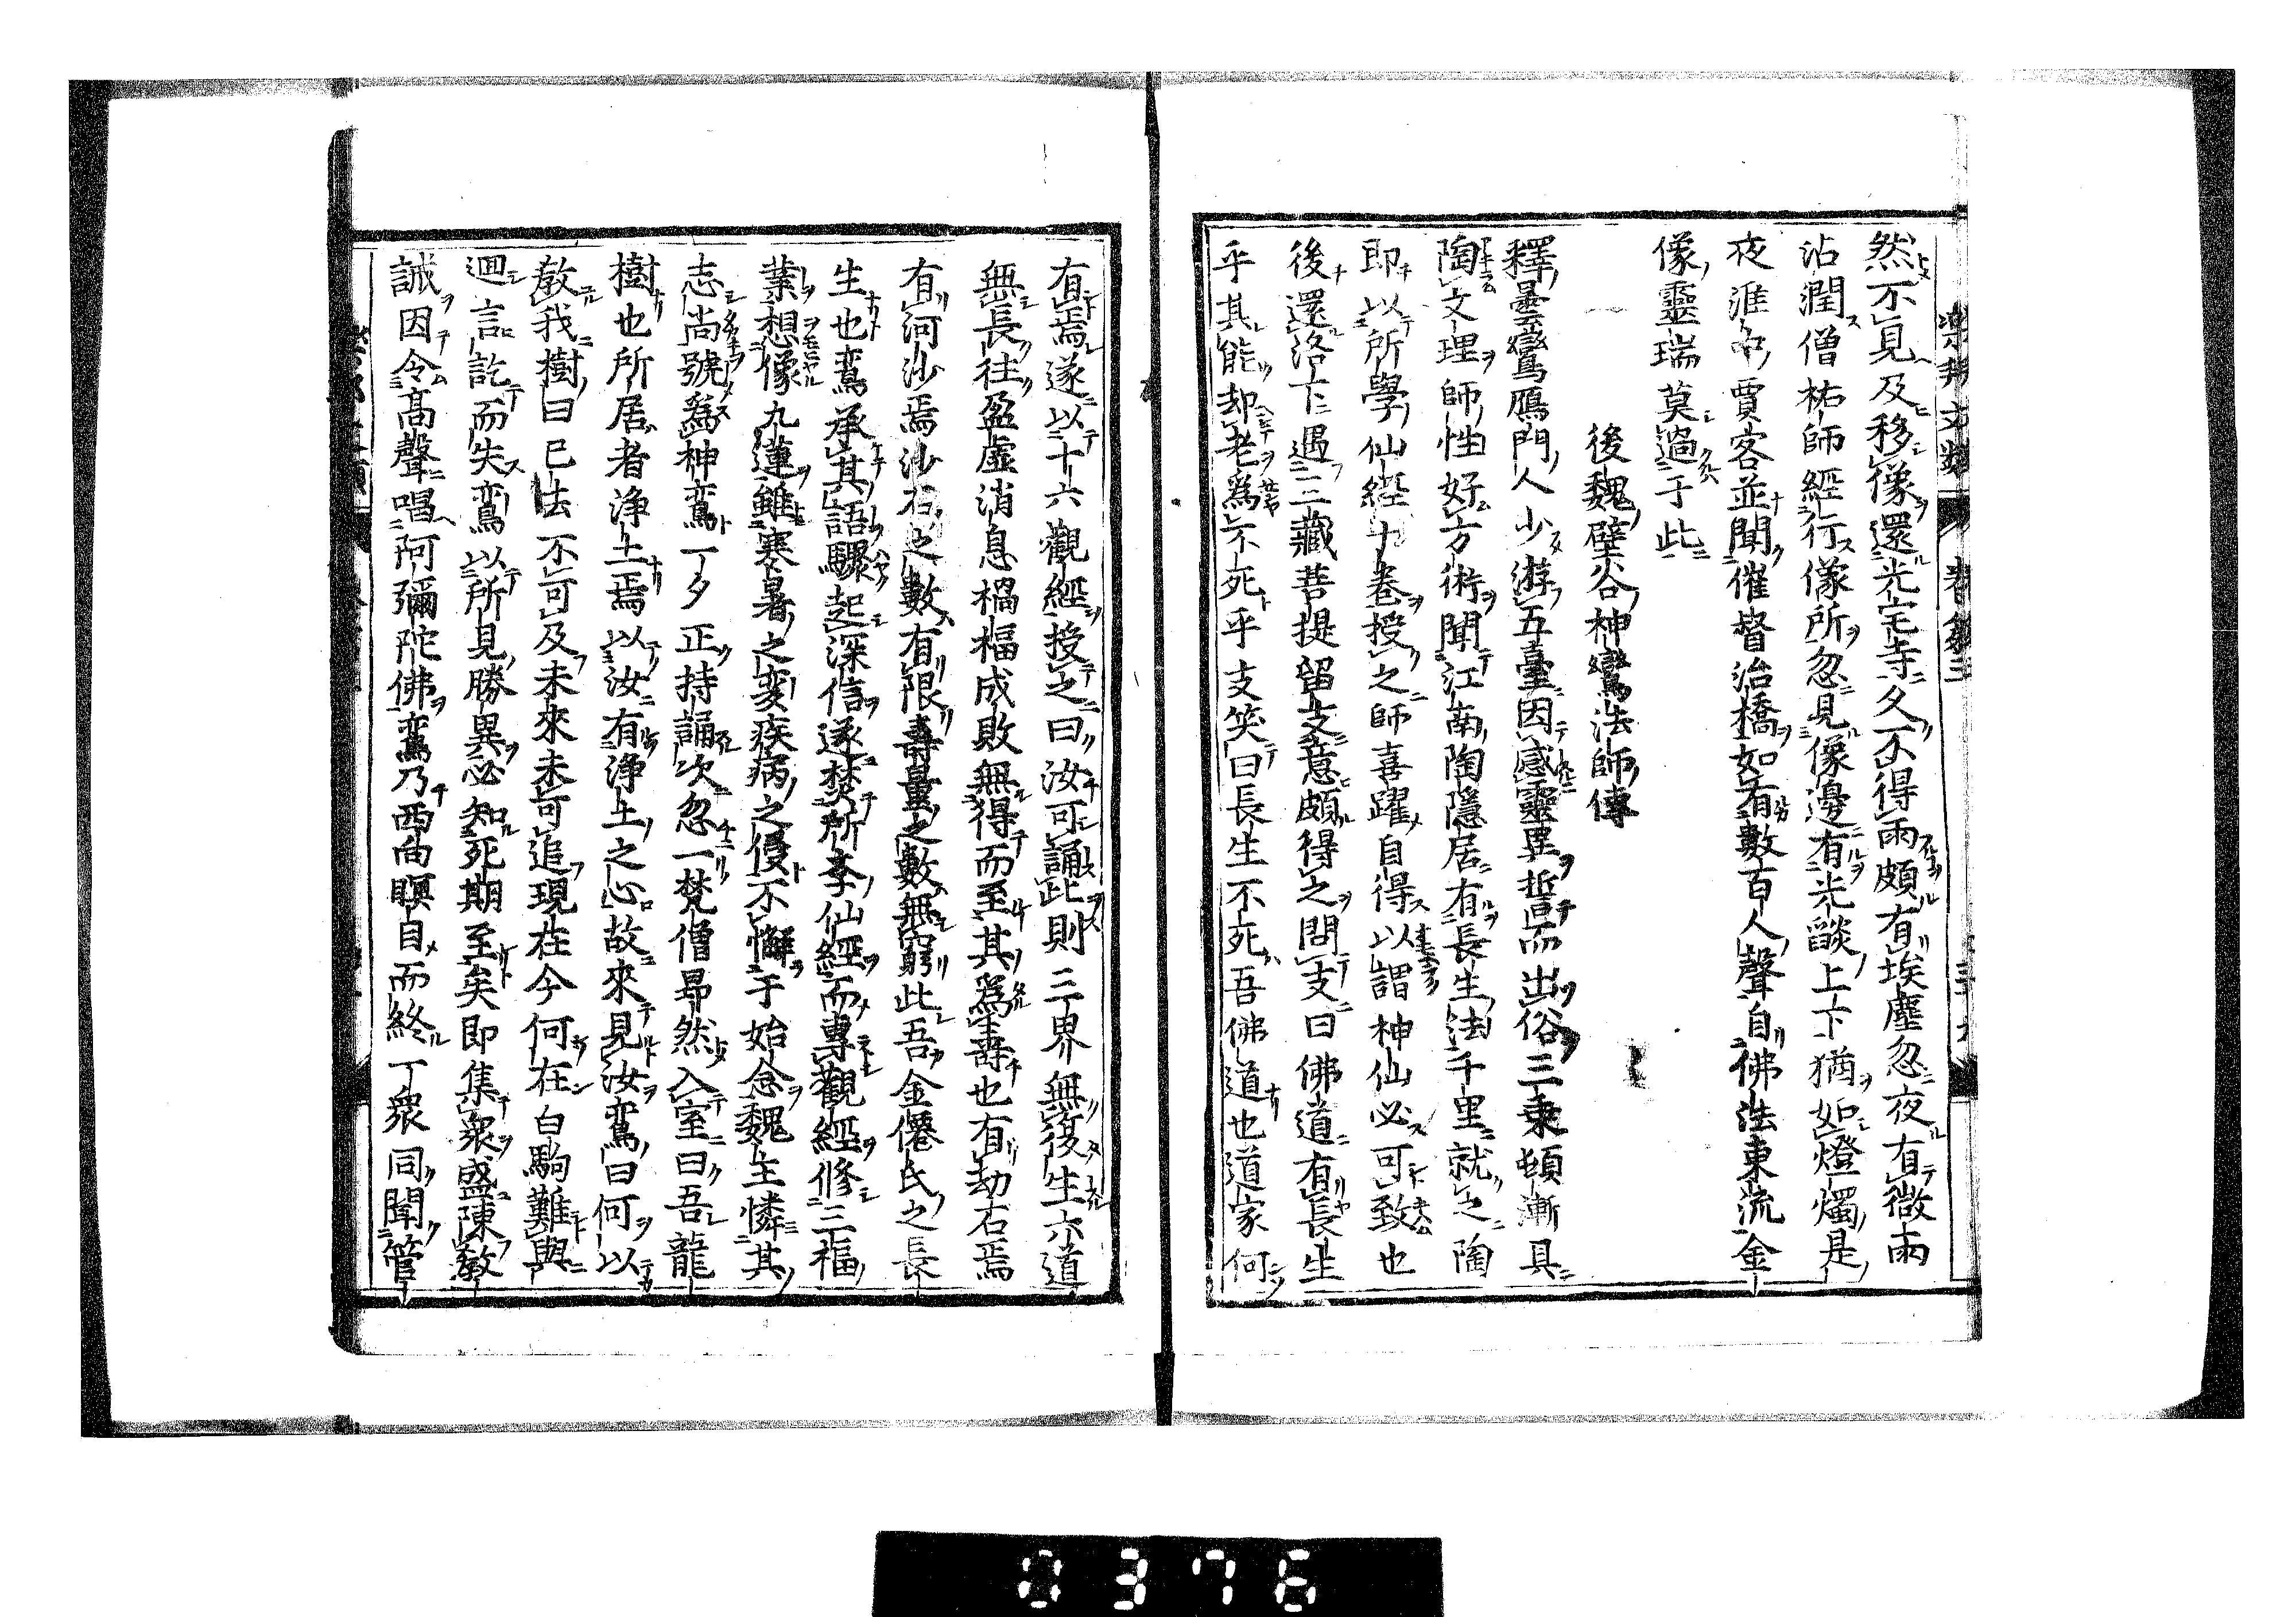 然不見及移像還光宅寺久不得雨頗有埃塵忽夜有微雨
沾潤僧祐師經行像所忽見像邊有光燄上下猶如燈燭是
夜淮中賈客並聞催督治橋如有數百人聲自佛法東流金
像靈瑞莫過于此
後魏壁谷神鸞法師傳
釋曇鸞鴈門人少遊五臺因感靈異誓而出俗三乘頓漸具
陶文理師性好方術聞江南陶隱居有長生法千里就之陶
即以所學仙經十卷授之師喜躍自得以謂神仙必可致也
後還洛下遇三藏菩提留支意頗得之問支曰佛道有長生
乎其能却老為不死乎支笑曰長生不死吾佛道也道家何
有焉遂以十六觀經授之曰汝可誦此則三界無復生六道
無長往盈虛消息禍福成敗無得而至其為壽也有劫石焉
有河沙焉沙石之數有限壽量之數無窮此吾金僊氏之長
生也鸞承其語驟起深信遂焚所李仙經而專觀經修三福
業想像九蓮雖寒暑之變疾病之侵不懈于始念魏主憐其
志尚號為神鸞一夕正持誦次忽一梵僧昂然入室曰吾龍
樹也所居者淨土焉以汝有淨土之心故來見汝鸞曰何以
教我樹曰已法不可及未來未可追現在今何在白駒難與
迴言訖而失鸞以所見勝異必知死期至矣即集衆盛陳教
誡因令高聲唱阿彌陀佛鸞乃西向瞑目而終一衆同聞管
樂邦文類 卷第三
0376